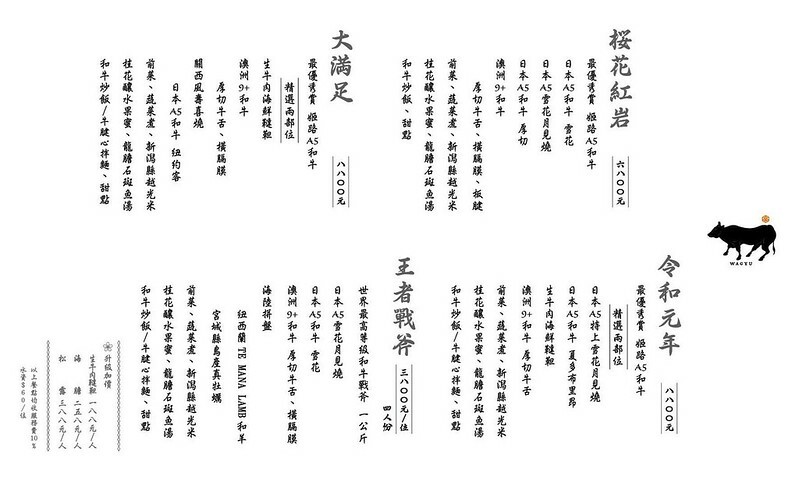 桜花紅岩
六八〇〇元
最優秀賞 姬路A5和牛
日本A5和牛 雪花
日本A5雪花月見燒
日本A5和牛 厚切
澳洲9+和牛
厚切牛舌、橫膈膜、板腱
前菜、蔬菜煮、新潟縣越光米
桂花釀水果蜜、龍膽石斑魚湯
和牛炒飯、甜點
大滿足
八八〇〇元
最優秀賞 姬路A5和牛
精選兩部位
生牛肉海鮮韃靼
澳洲9+和牛
厚切牛舌、橫膈膜
關西風壽喜燒
日本A5和牛 紐約客
前菜、蔬菜煮、新潟縣越光米
桂花釀水果蜜、龍膽石斑魚湯
和牛炒飯/牛腱心拌麵、甜點
WAGYU
令和元年
八八〇〇元
最優秀賞 姬路A5和牛
精選兩部位
日本A5特上雪花月見燒
日本A5和牛 夏多布里昂
生牛肉海鮮韃靼
澳洲9+和牛 厚切牛舌
前菜、蔬菜煮、新潟縣越光米
桂花釀水果蜜、龍膽石斑魚湯
和牛炒飯/牛腱心拌麵、甜點
王者戰斧
三八〇〇元/位
四人份
世界最高等級和牛戰斧 一公斤
日本A5雪花月見燒
日本A5和牛 雪花
澳洲9+和牛 厚切牛舌、橫膈膜
海陸拼盤
紐西蘭 TE MANA LAMB 和羊
宮城縣鳥產真牡蠣
前菜、蔬菜煮、新潟縣越光米
桂花釀水果蜜、龍膽石斑魚湯
和牛炒飯/牛腱心拌麵、甜點
升級加價
生牛肉韃靼 一八八元/人
海膽 二五八元/人
松露 三八八元/人
以上餐點均收服務費10%
水資$60/位